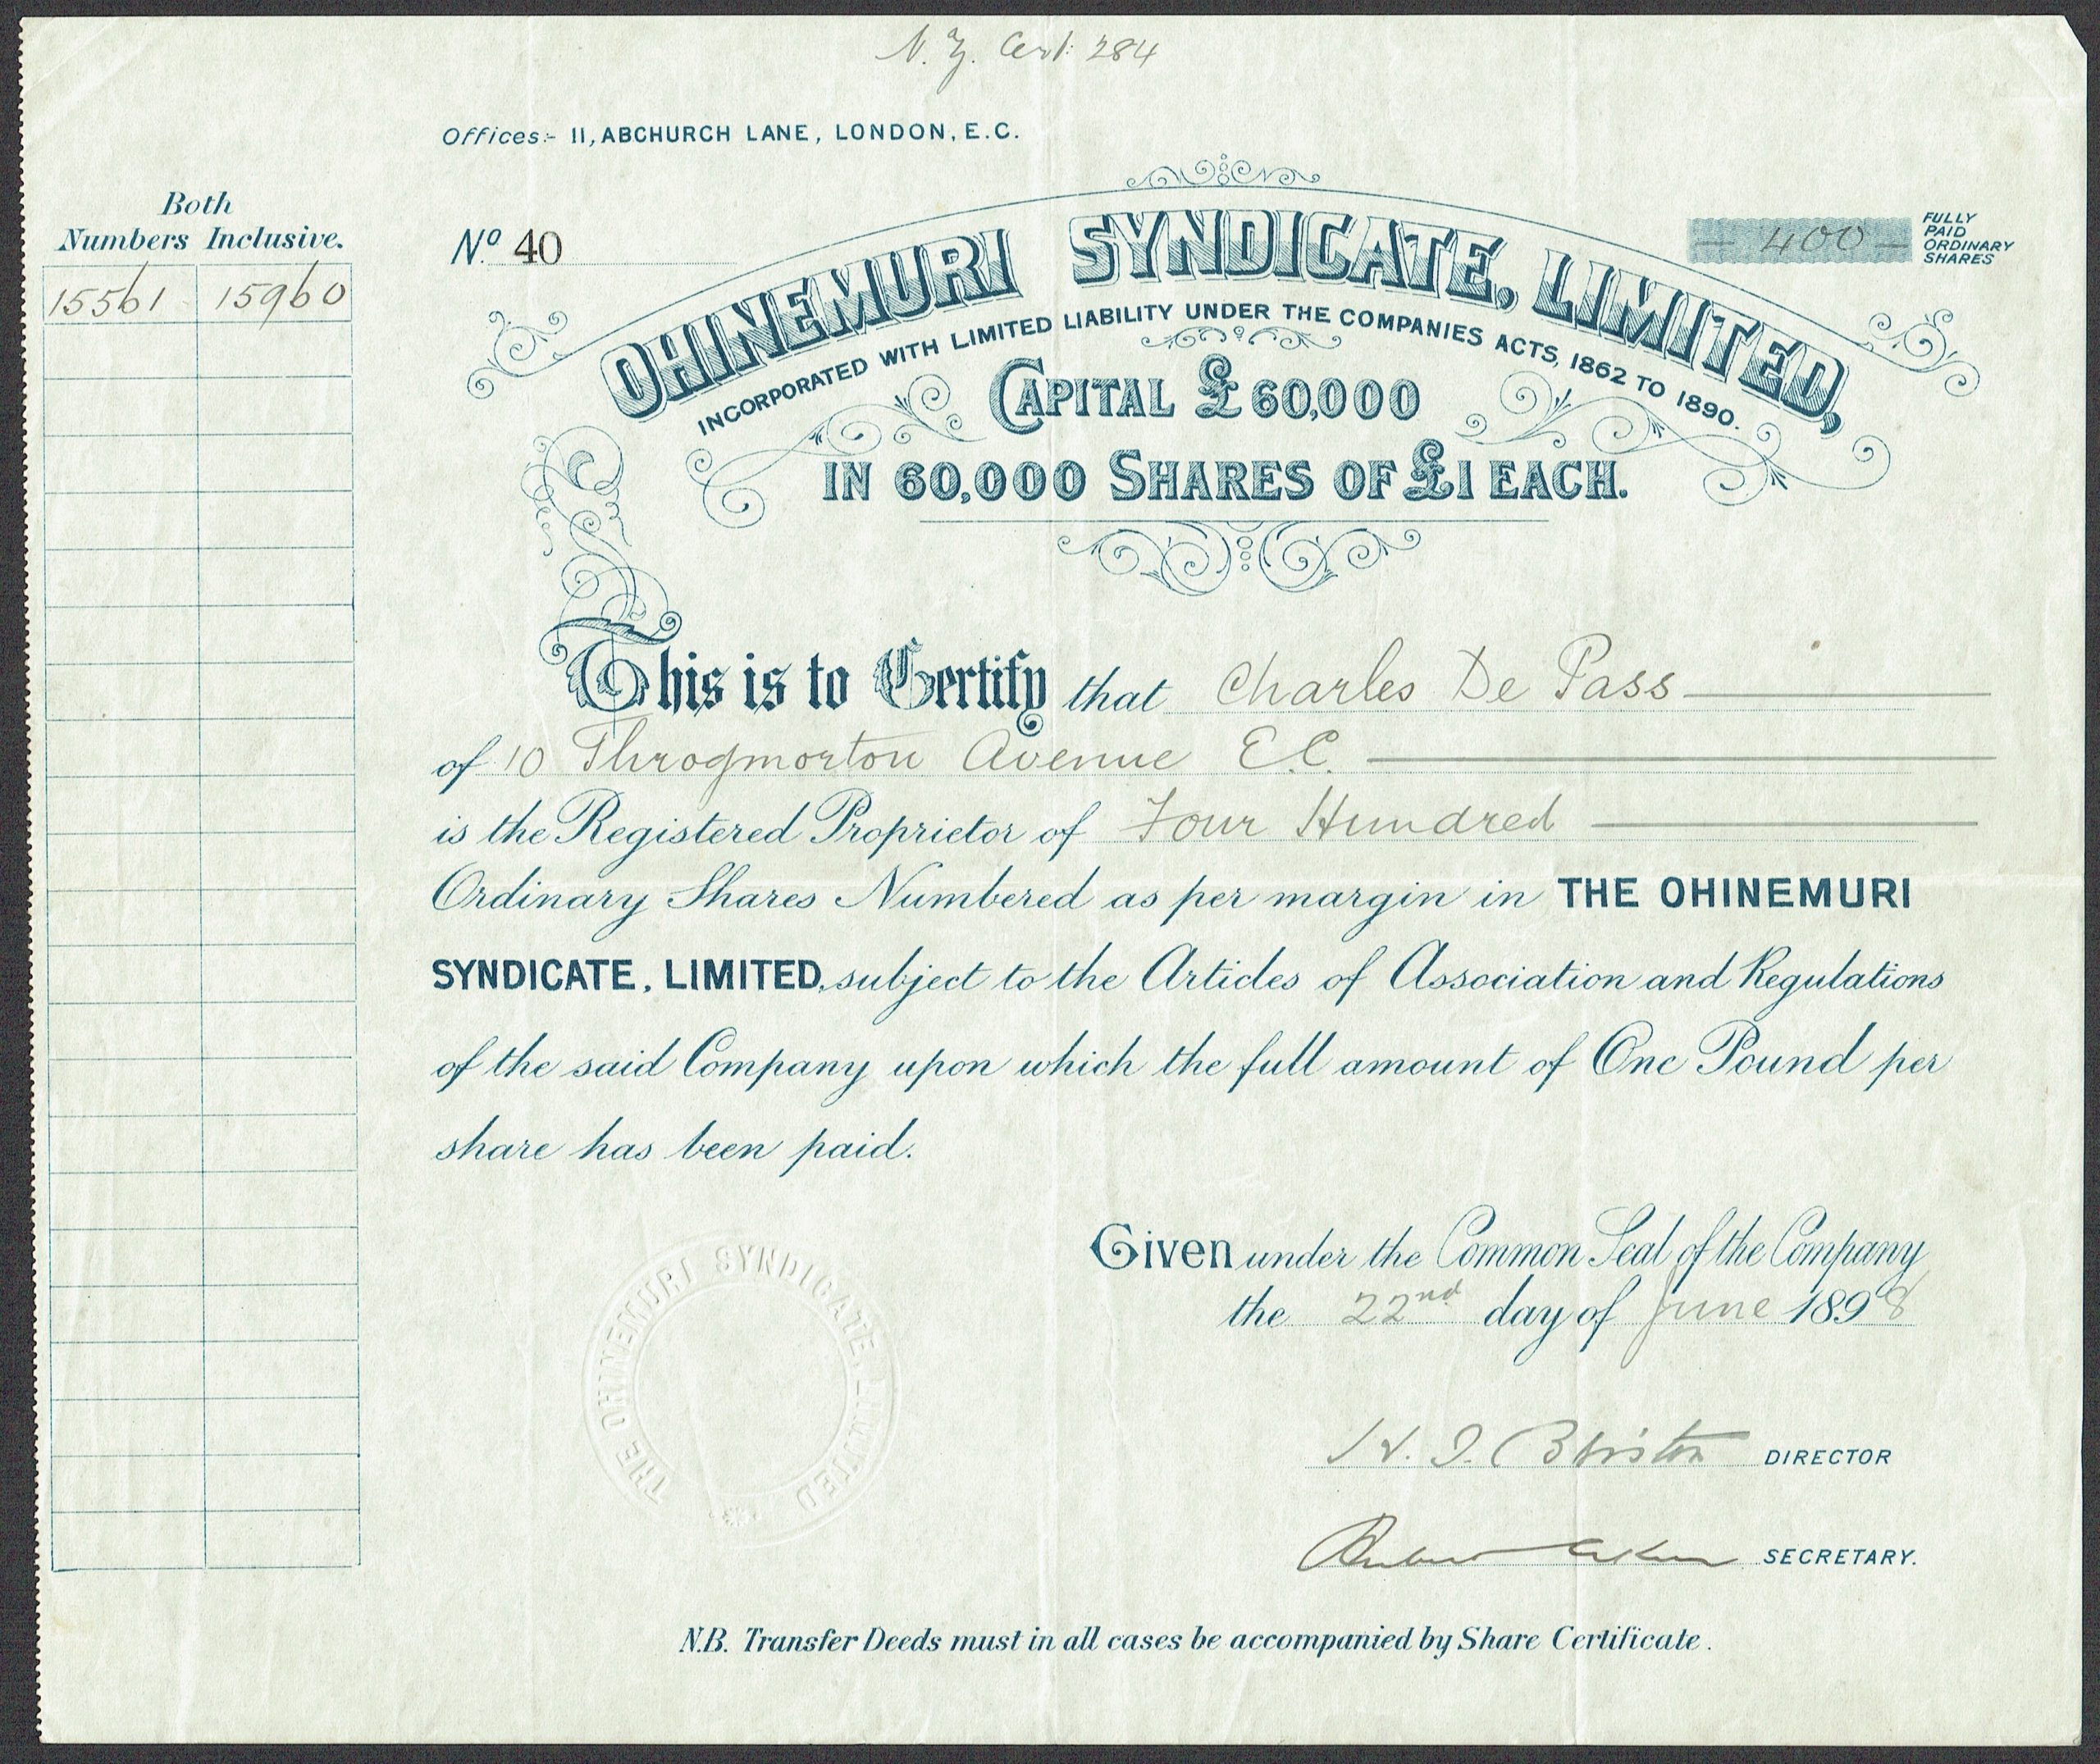 N. Z. Cert: 284
Offices:- 11, ABCHURCH LANE, LONDON, E.C.
Both
Numbers Inclusive.
15561 15960
No. 40
400
FULLY
PAID
ORDINARY
SHARES
OHINEMURI SYNDICATE, LIMITED,
INCORPORATED WITH LIMITED LIABILITY UNDER THE COMPANIES ACTS, 1862 TO 1890.
CAPITAL £60,000
IN 60,000 SHARES OF £1 EACH.
This is to Certify that Charles De Pass
of 10 Throgmorton Avenue E.C.
is the Registered Proprietor of Four Hundred
Ordinary Shares Numbered as per margin in THE OHINEMURI
SYNDICATE, LIMITED, subject to the Articles of Association and Regulations
of the said Company upon which the full amount of One Pound per
share has been paid.
Given under the Common Seal of the Company
the 22nd day of June 1898
THE OHINEMURI SYNDICATE LIMITED
DIRECTOR
SECRETARY.
N.B. Transfer Deeds must in all cases be accompanied by Share Certificate.